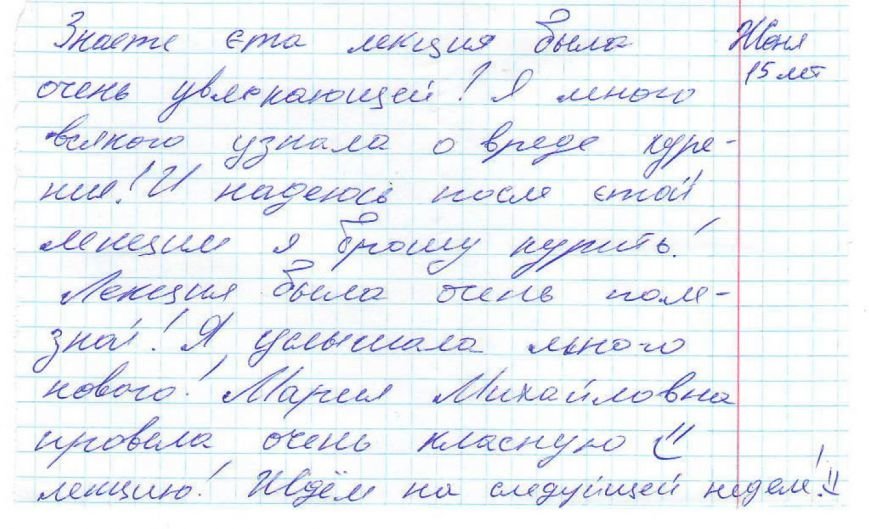 Знаете ета лекция была
Женя
15 лет
очень увлекающей! Я много
всякого узнала о вреде куре-
ния! И надеюсь после етой
лекции я брошу курить!
Лекция была очень поле-
зной! Я услышала много
нового! Мария Михайловна
провела очень класную
лекцию! Ждём на следующей неделе!